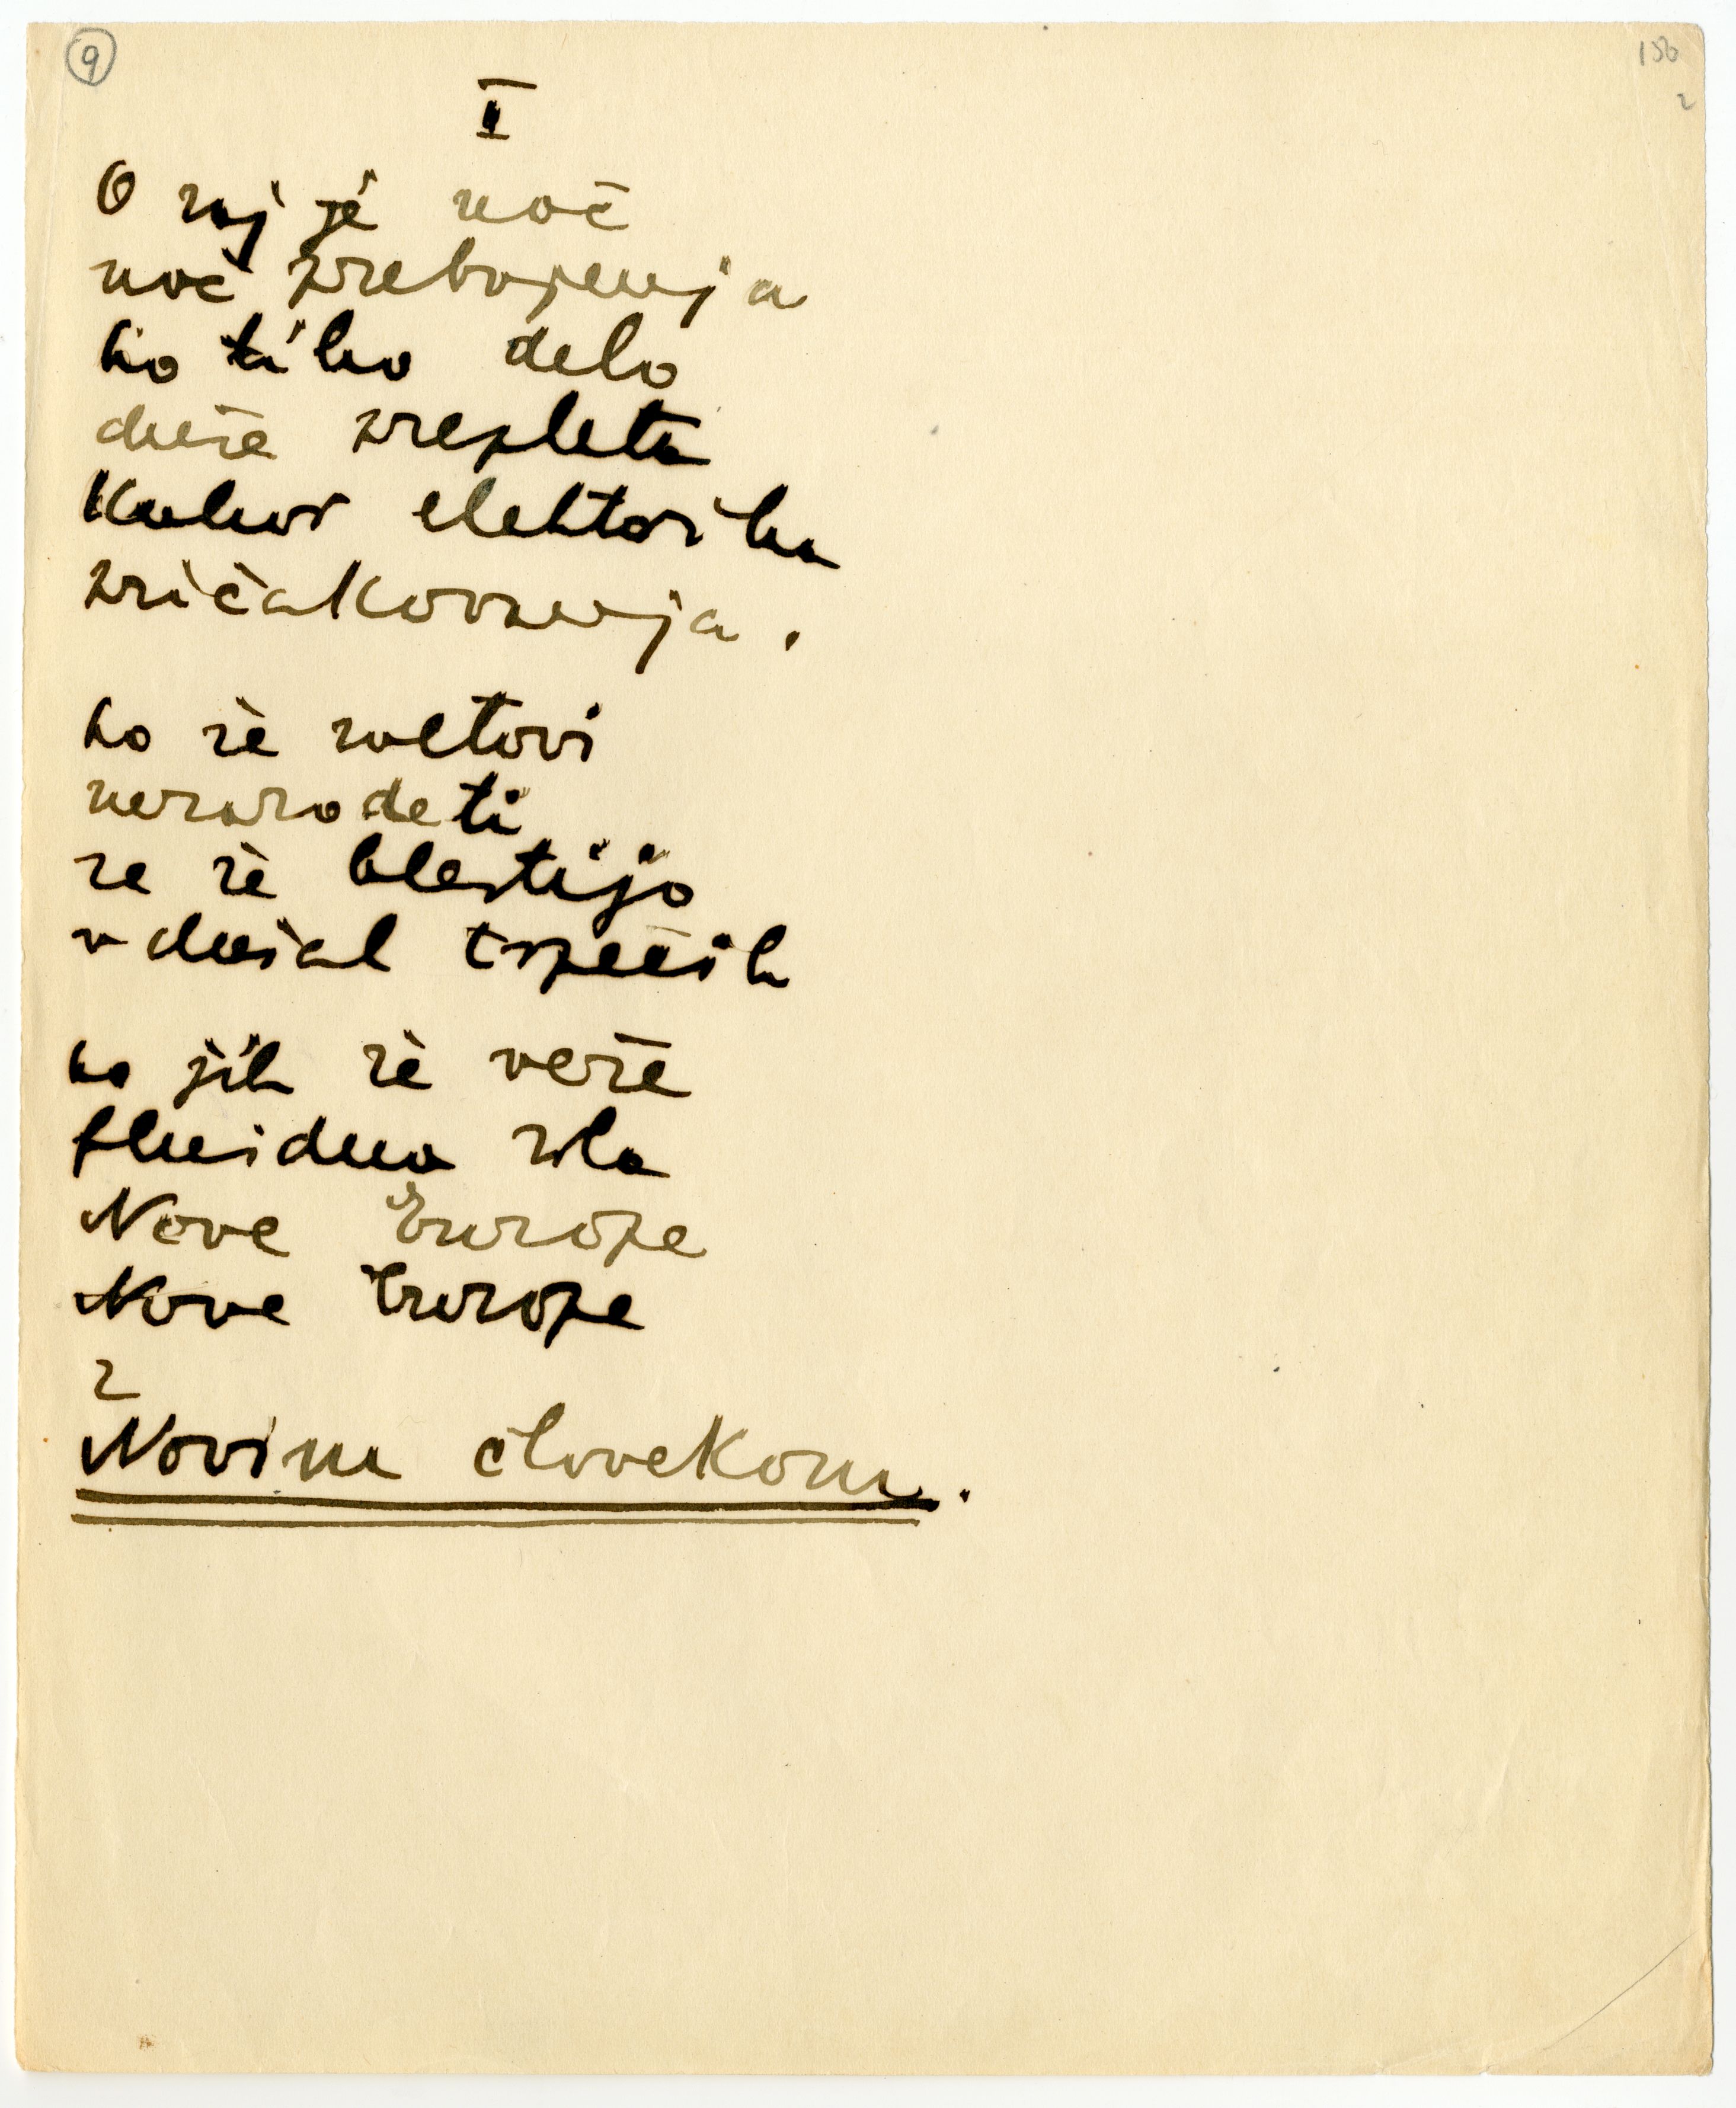 9
156
2
I
O saj je noč
noč prebujenja
ko tiho delo
duše prepleta
Kakor elektrika
pričakovanja.
ko že svetovi
nerazodeti
se že blestijo
v dušah trpečih
ko jih že veže
fluidna sila
Nove Europe
Nove Europe
z
Novim človekom.